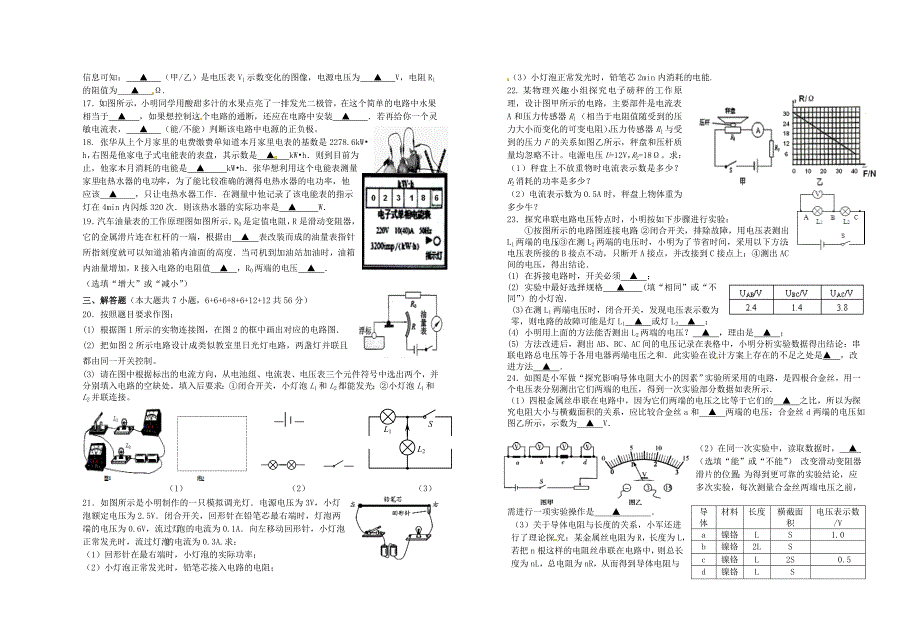 信息可知：▲（甲/乙）是电压表V₁示数变化的图像，电源电压为▲V，电阻R₁
的阻值为▲Ω.
17．如图所示，小明同学用酸甜多汁的水果点亮了一排发光二极管，在这个简单的电路中水果
相当于▲，如果想控制这个电路的通断，还应在电路中安装▲．若再给你一个灵
敏电流表，▲（能/不能）判断该电路中电源的正负极。
18．张华从上个月家里的电费缴费单知道本月家里电表的基数是2278.6kW•
h,右图是他家电子式电能表的表盘，其示数是▲kW•h．则到目前为
止，他家本月消耗的电能是▲kW•h．张华想利用这个电能表测量
家里电热水器的电功率，为了能比较准确的测得电热水器的电功率，他
应该▲，只让电热水器工作．在测量中他记录了该电能表的指示
灯在4min内闪烁320次．则该热水器的实际功率是▲W．
19.汽车油量表的工作原理图如图所示.R₀是定值电阻，R是滑动变阻器，
它的金属滑片连在杠杆的一端，根据由▲表改装而成的油量表指针
所指刻度就可以知道油箱内油面的高度．当司机到加油站加油时，油箱
内油量增加，R接入电路的电阻值▲，R₀两端的电压▲．
（选填“增大”或“减小”）
三、解答题（本大题共7小题，6+6+6+8+6+12+12共56分）
20．按照题目要求作图：
(1) 根据图1所示的实物连接图，在图2的框中画出对应的电路图．
(2) 把如图2所示电路设计成类似教室里日光灯电路，两盏灯并联且
都由同一开关控制。
(3) 请在图中根据标出的电流方向，从电池组、电流表、电压表三个元件符号中选出两个，并
分别填入电路的空缺处．填入后要求：①闭合开关，小灯泡L₁和L₂都能发光；②小灯泡L₁和
L₂并联连接。
kW·h
0 0 1 8 6
电子式单相电能表
220V 10(40)A 50Hz
3200imp/(kW·h)
指示灯
R₀
R
浮标
油量表
L₁
L₂
图1
图2
L₁
S
L₂
（1）
（2）
（3）
21．如图所示是小明制作的一只模拟调光灯．电源电压为3V，小灯
泡额定电压为2.5V．闭合开关，回形针在铅笔芯最右端时，灯泡两
端的电压为0.6V，流过灯泡的电流为0.1A．向左移动回形针，小灯泡
正常发光时，流过灯泡的电流为0.3A．求：
（1）回形针在最右端时，小灯泡的实际功率；
（2）小灯泡正常发光时，铅笔芯接入电路的电阻；
铅笔芯
回形针
（3）小灯泡正常发光时，铅笔芯2min内消耗的电能.
22．某物理兴趣小组探究电子磅秤的工作原
理，设计图甲所示的电路，主要部件是电流表
A和压力传感器R₁（相当于电阻值随受到的压
力大小而变化的可变电阻）．压力传感器R₁与受
到的压力F的关系如图乙所示，秤盘和压杆质
量均忽略不计。电源电压U=12V,R₂=18Ω。求：
（1）秤盘上不放重物时电流表示数是多少？
R₂消耗的功率是多少？
（2）电流表示数为0.5A时，秤盘上物体重为
多少牛？
秤盘
压杆
R₁
A
R₂
S
甲
R/Ω
30
24
18
12
6
0 10 20 30 40
F/N
乙
23．探究串联电路电压特点时，小明按如下步骤进行实验：
①按图所示的电路图连接电路 ②闭合开关，排除故障，用电压表测出
L₁两端的电压③在测L₂两端的电压时，小明为了节省时间，采用以下方法：
电压表所接的B接点不动，只断开A接点，并改接到C接点上；④测出AC
间的电压，得出结论．
(1) 在拆接电路时，开关必须▲；
(2) 实验中最好选择规格▲（填“相同”或“不
同”）的小灯泡．
(3)在测L₁两端电压时，闭合开关，发现电压表示数为
零，则电路的故障可能是灯L₁▲或灯L₂▲；
(4) 小明用上面的方法能否测出L₂两端电压？▲，理由是▲；
(5) 方法改进后，测出AB、BC、AC间的电压记录在表格中，小明分析实验数据得出结论：串
联电路总电压等于各用电器两端电压之和．此实验在设计方案上存在的不足之处是▲，改
进方法▲．
V
A L₁ B L₂ C
S
U_AB/V U_BC/V U_AC/V
2.4 1.4 3.8
24．如图是小军做“探究影响导体电阻大小的因素”实验所采用的电路，是四根合金丝，用一
个电压表分别测出它们两端的电压，得到一次实验部分数据如表所示．
（1）四根金属丝串联在电路中，因为它们两端的电压之比等于它们的▲之比，所以为探
究电阻大小与横截面积的关系，应比较合金丝a和▲两端的电压；合金丝d两端的电压如
图乙所示，示数为▲V．
V V V V
a b c d
图甲
0 5 10 15
0 1 2 3
V
- 3 15
图乙
（2）在同一次实验中，读取数据时，▲
（选填“能”或“不能”） 改变滑动变阻器
滑片的位置；为得到更可靠的实验结论，应
多次实验，每次测量合金丝两端电压之前，
需进行一项实验操作是▲．
（3）关于导体电阻与长度的关系，小军还进
行了理论探究：某金属丝电阻为R，长度为L，
若把n根这样的电阻丝串联在电路中，则总长
度为nL，总电阻为nR，从而得到导体电阻与
导体 材料 长度 横截面积 电压表示数/V
a 镍铬 L S 1.0
b 镍铬 2L S
c 镍铬 L 2S 0.5
d 镍铬 L S